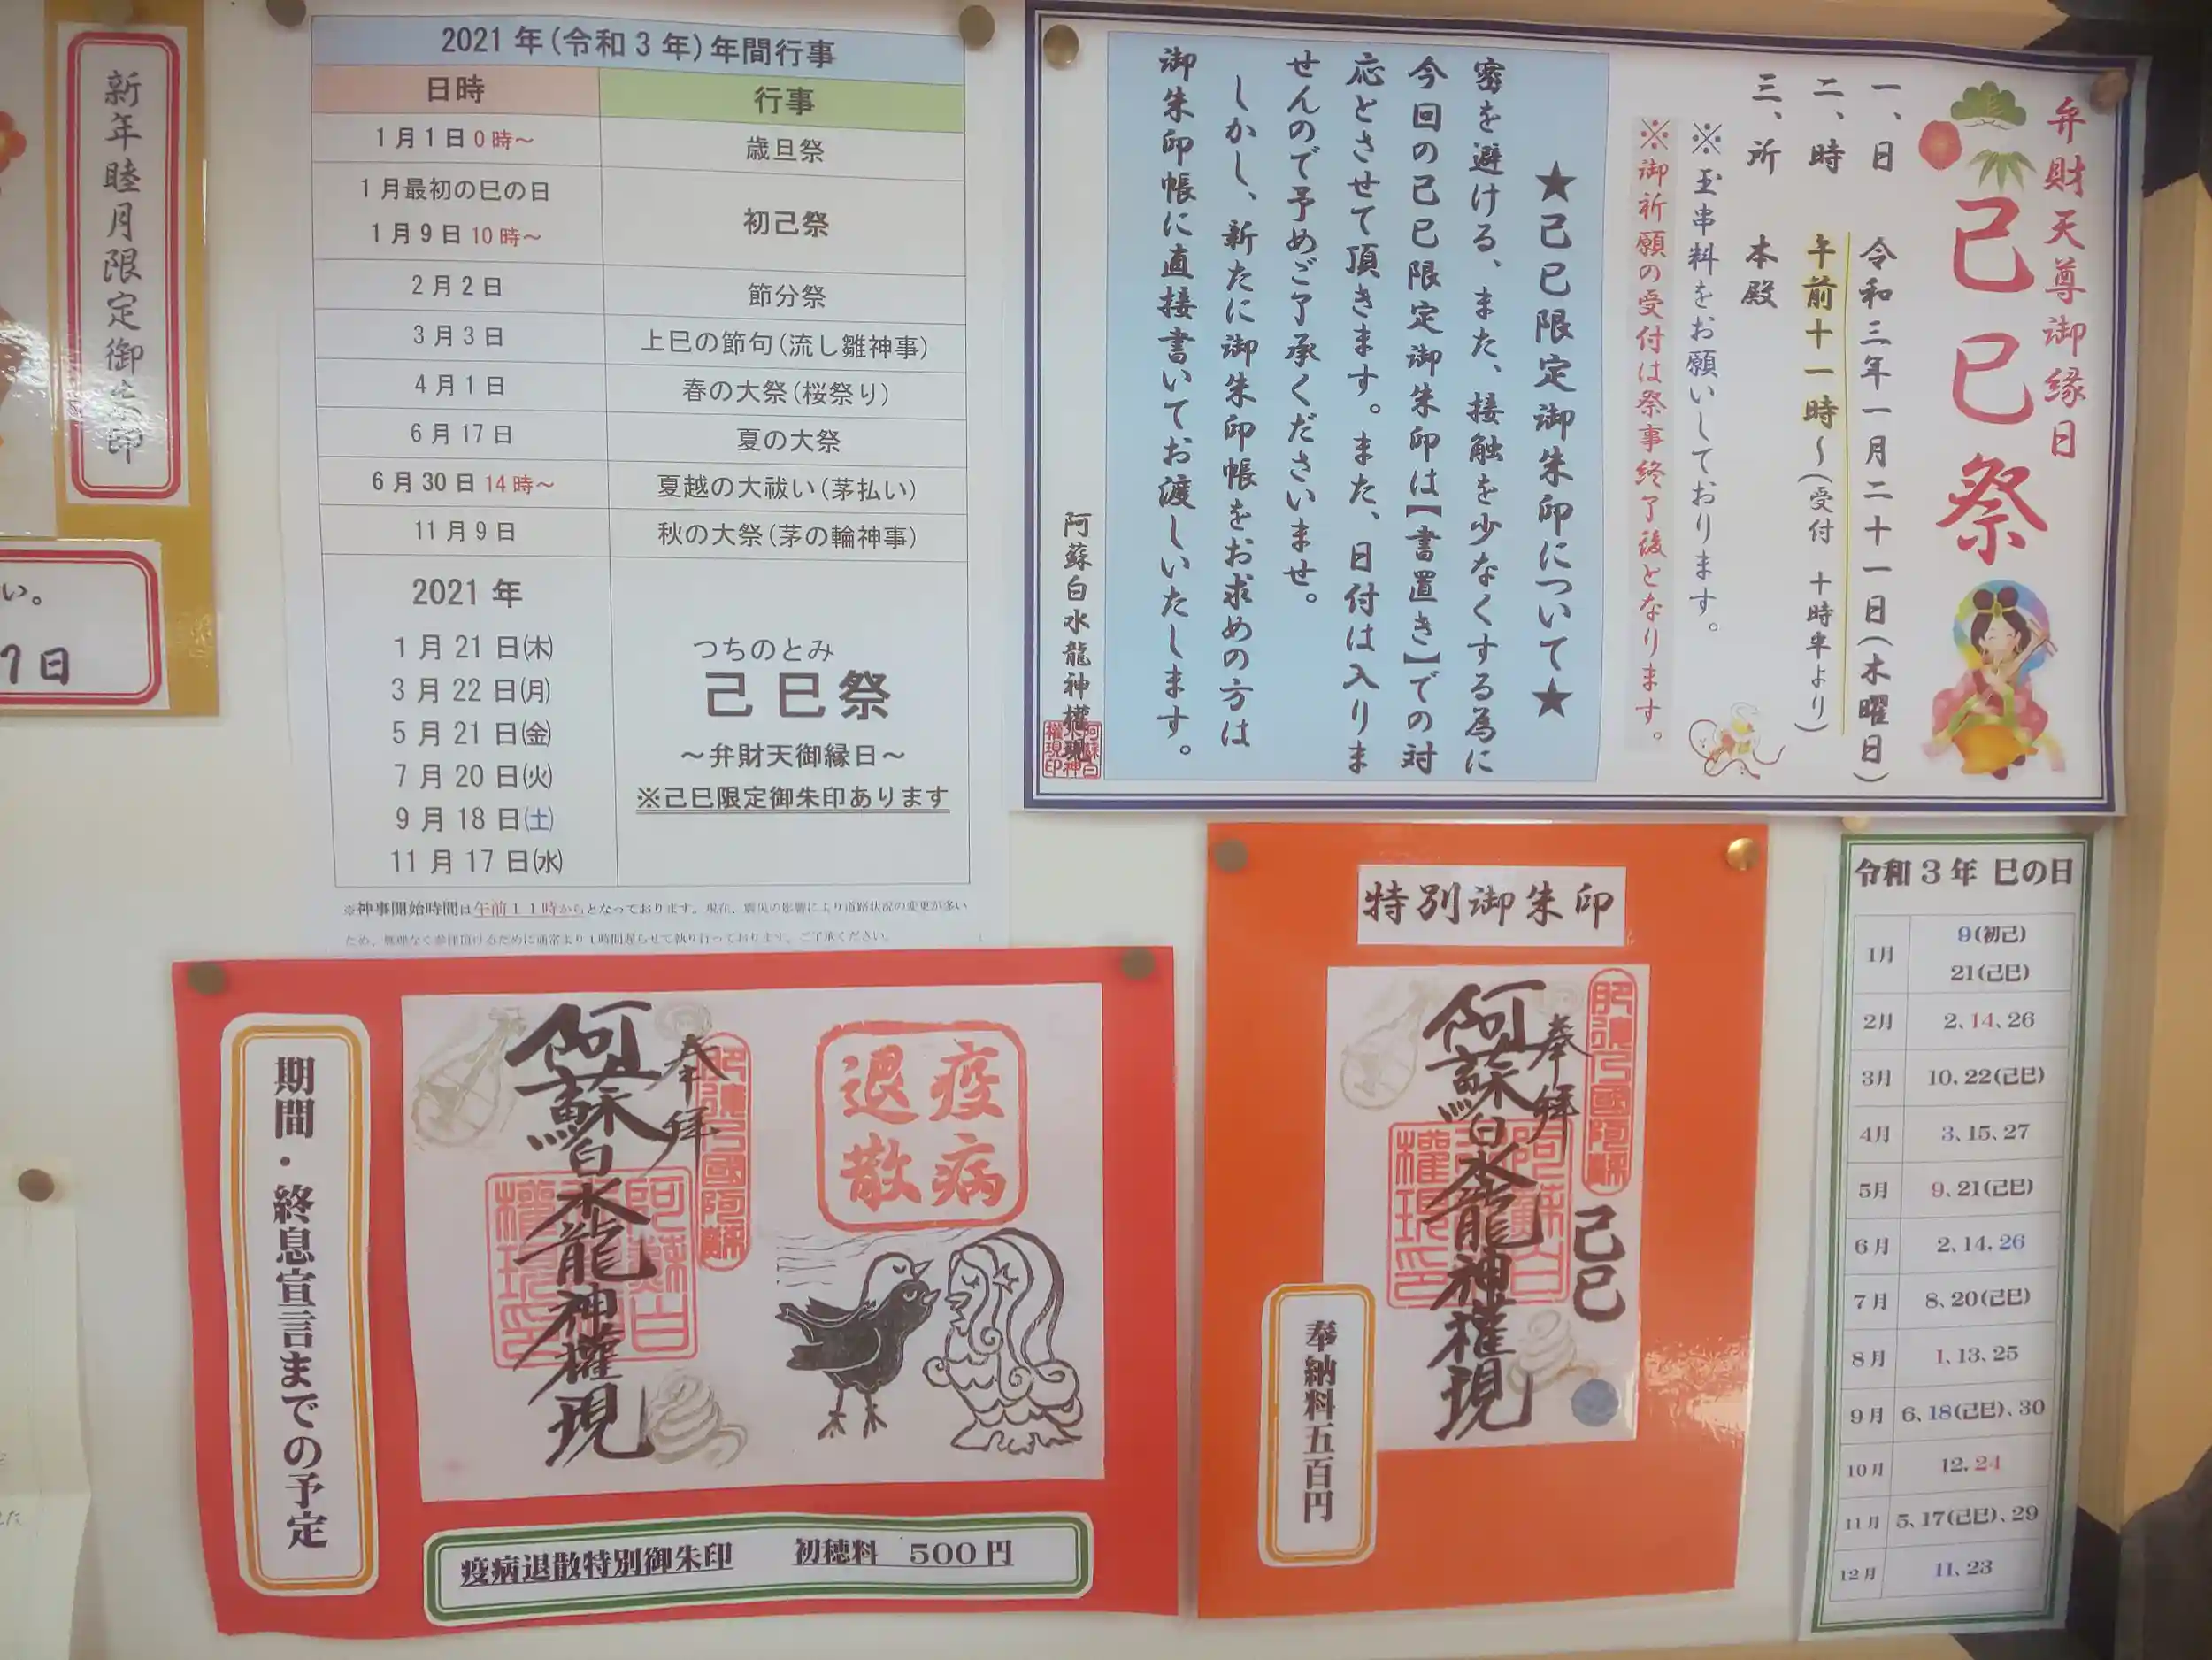 新年睦月限定御朱印
い。
7日
2021年(令和3年)年間行事
日時 行事
1月1日0時~ 歳旦祭
1月最初の巳の日
1月9日10時~ 初己祭
2月2日 節分祭
3月3日 上巳の節句(流し雛神事)
4月1日 春の大祭(桜祭り)
6月17日 夏の大祭
6月30日14時~ 夏越の大祓い(茅払い)
11月9日 秋の大祭(茅の輪神事)
2021年
1月21日㈭
3月22日㈪
5月21日㈮
7月20日㈫
9月18日㈯
11月17日㈬
つちのとみ
己巳祭
~弁財天御縁日~
※己巳限定御朱印あります
※神事開始時間は午前11時からとなっております。現在、震災の影響により道路状況の変更が多い
ため、無理なく参拝頂けるために通常より1時間遅らせて執り行っております。ご了承ください。
弁財天尊御縁日
己巳祭
一、日 令和三年一月二十一日(木曜日)
二、時 午前十一時~(受付 十時半より)
三、所 本殿
※玉串料をお願いしております。
※御祈願の受付は祭事終了後となります。
★己巳限定御朱印について★
密を避ける、また、接触を少なくする為に
今回の己巳限定御朱印は【書置き】での対
応とさせて頂きます。また、日付は入りま
せんので予めご了承くださいませ。
しかし、新たに御朱印帳をお求めの方は
御朱印帳に直接書いてお渡しいたします。
阿蘇白水龍神權現
阿蘇白水龍神權現印
期間・終息宣言までの予定
奉拝
阿蘇白水龍神權現
疫病
退散
疫病退散特別御朱印 初穂料 500円
特別御朱印
奉拝
己巳
阿蘇白水龍神權現
奉納料五百円
令和3年 巳の日
1月 9(初己)
21(己巳)
2月 2、14、26
3月 10、22(己巳)
4月 3、15、27
5月 9、21(己巳)
6月 2、14、26
7月 8、20(己巳)
8月 1、13、25
9月 6、18(己巳)、30
10月 12、24
11月 5、17(己巳)、29
12月 11、23